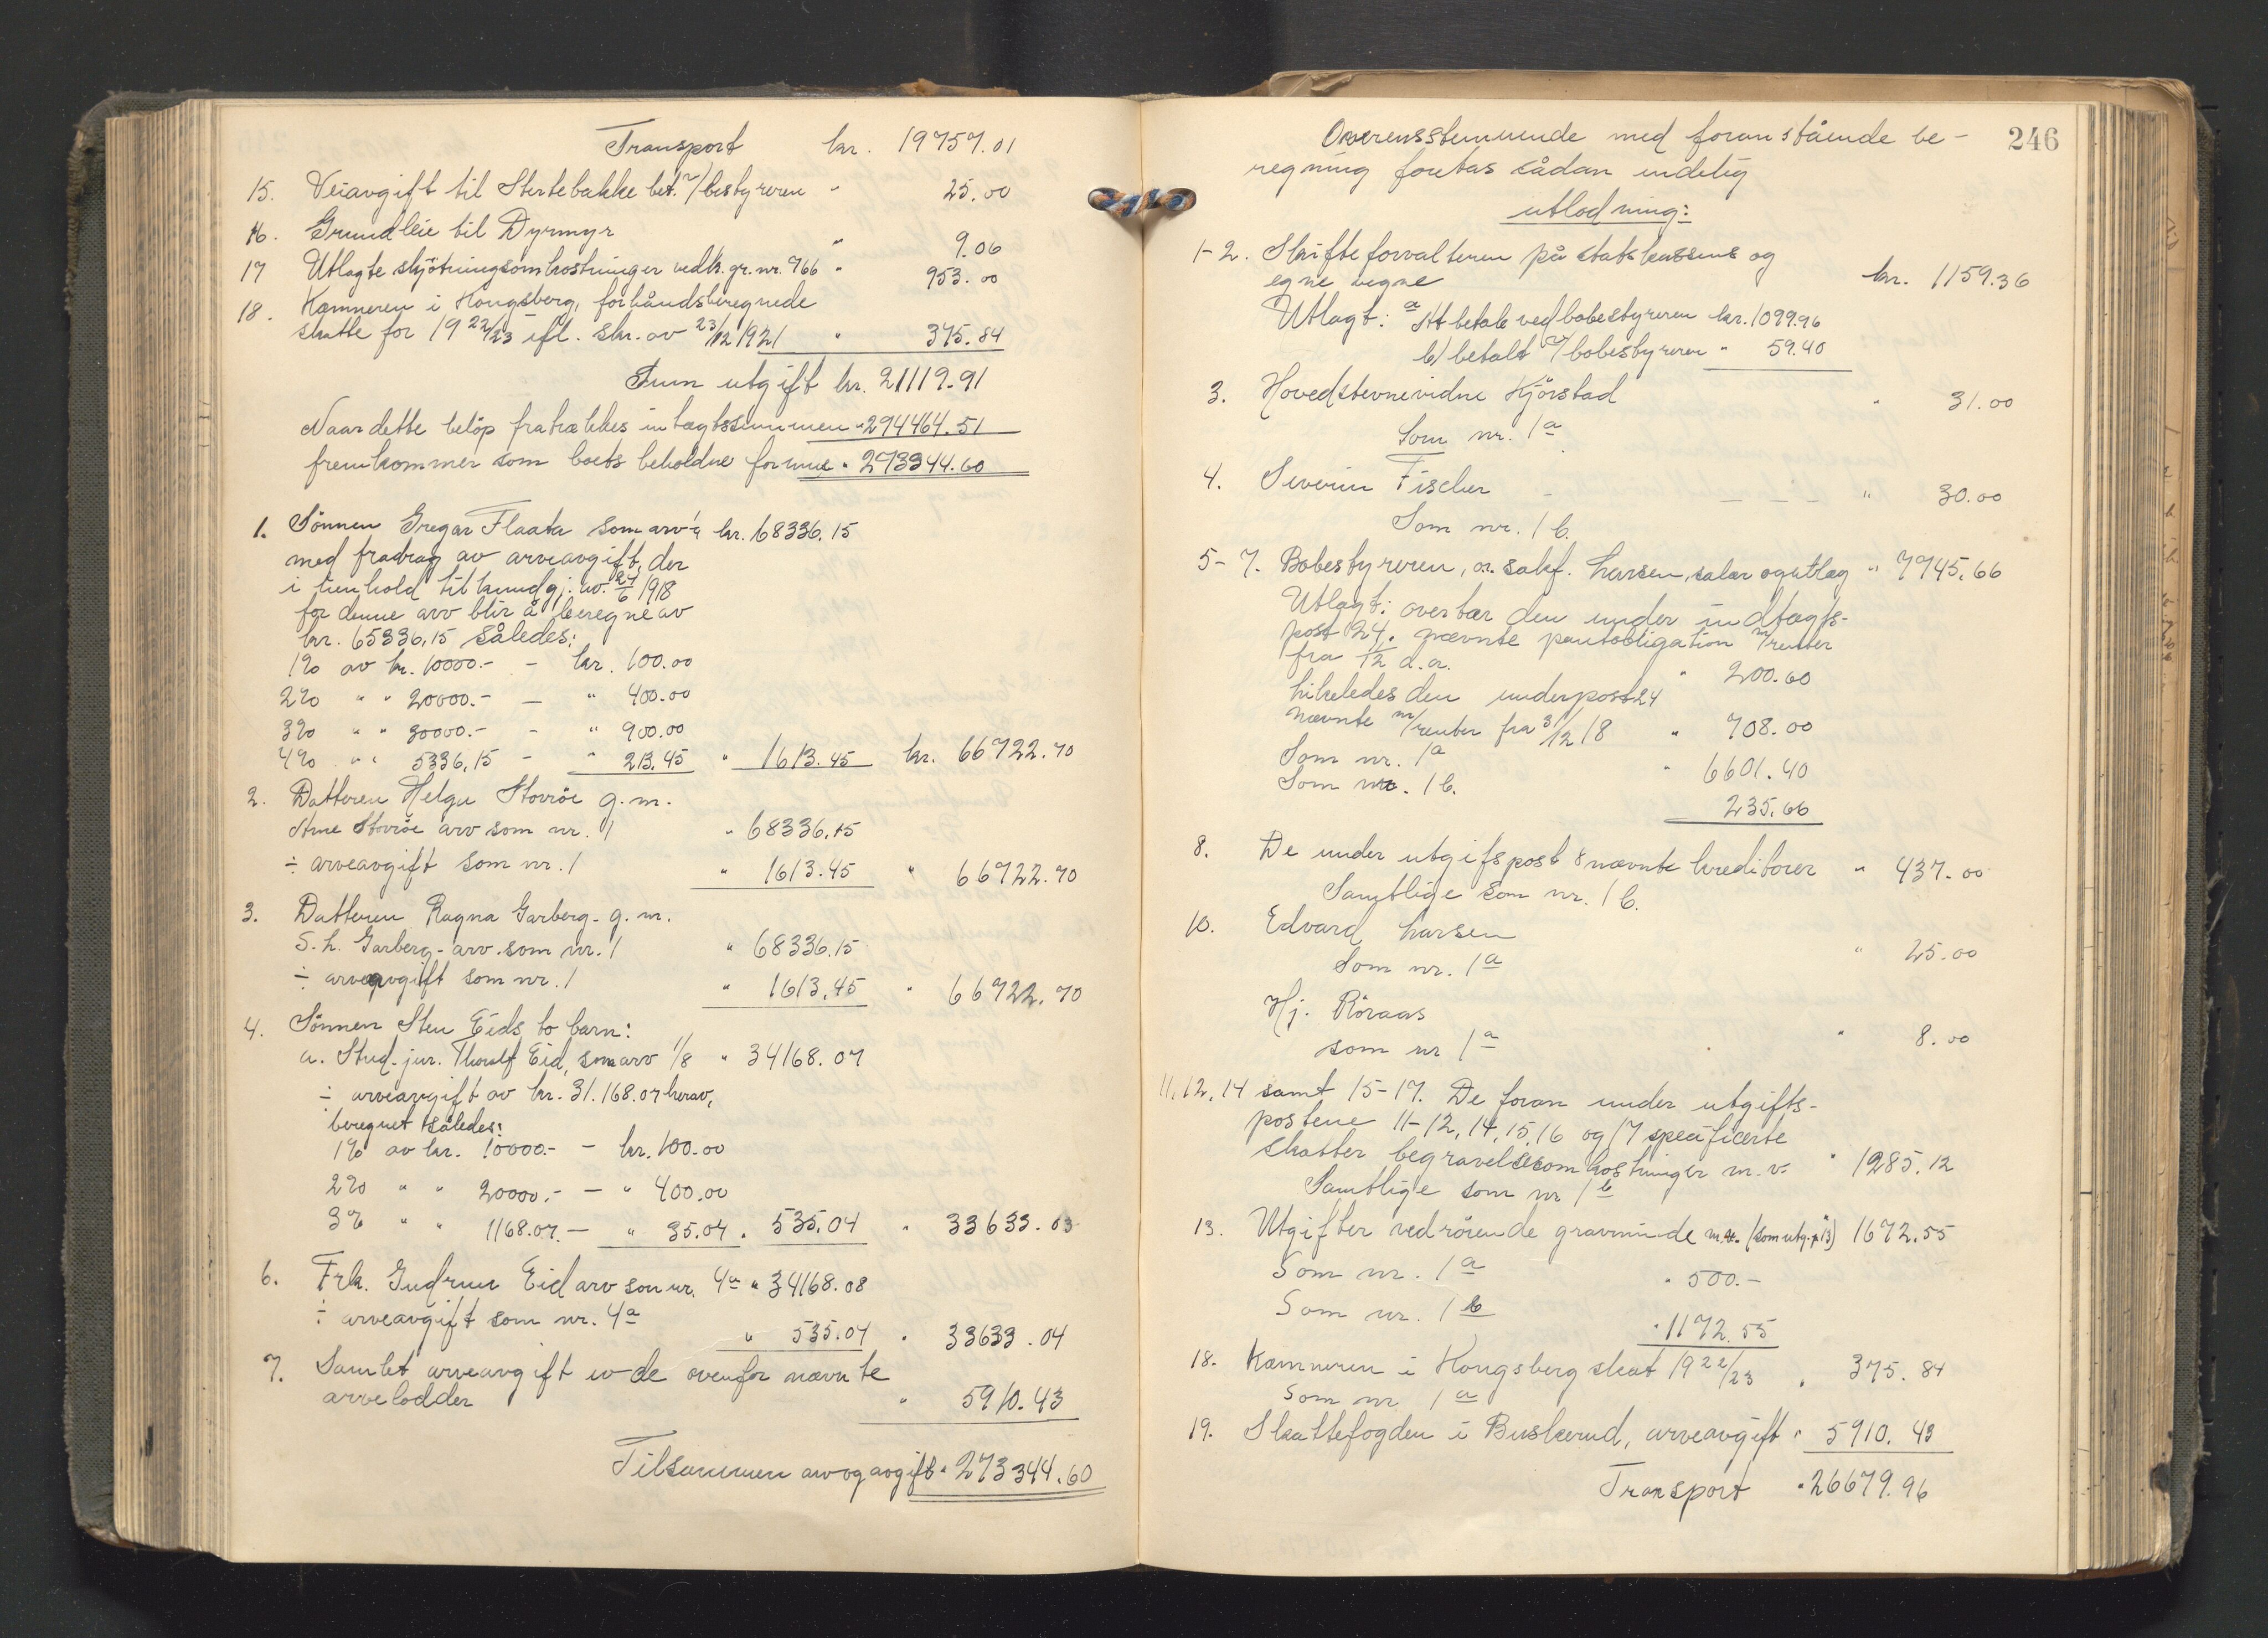 Transport kr. 19757.01
15. Veiavgift til Stertebakke bet. v/bestyreren " 25.00
16. Grundleie til Dyrmyr " 9.06
17 Utlagte skjötningsomkostninger vedk. gr. nr. 966 " 953.00
18. Kæmneren i Kongsberg, forhåndsberegnede
skatte for 1922/23 ifl. skr. av 23/12 1921 " 375.84
Sum utgift kr. 21119.91
Naar dette belöp fratrækkes intægtssummen " 294464.51
fremkommer som boets beholdne formue " 273344.60
1. Sönnen Gregar Flaata som arv ¼ kr. 68336.15
med fradrag av arveavgift, der
i henhold til kundgj. av 24/6 1918
for denne arv blir å beregne av
kr. 65336,15 således:
1% av kr. 10000.- - kr. 100.00
2% " " 20000.- — " 400.00
3% " " 30000.- - " 900.00
4% " " 5336,15 - " 213.45 " 1613.45 kr. 66722.70
2. Datteren Helga Stovröe g.m.
Arne Stovröe arv som nr. 1 " 68336.15
÷ arveavgift som nr. 1 " 1613.45 " 66722.70
3. Datteren Ragna Garberg - g. m.
S. L. Garberg - arv. som nr. 1 " 68336.15
÷ arveavgift som nr. 1 " 1613.45 " 66722.70
4. Sönnen Sten Eids to barn:
a. Stud. jur. Thoralf Eid, som arv 1/8 " 34168.07
÷ arveavgift av kr. 31.168.07 herav,
beregnet således:
1% av kr. 10000.- - kr. 100.00
2% " " 20000.- — " 400.00
3% " " 1168.07. — " 35.04 " 535.04 " 33633.03
6. Frk. Gudrun Eid arv som nr. 4a " 34168.08
÷ arveavgift som nr. 4a " 535.04 " 33633.04
7. Samlet arveavgift av de ovenfor nævnte
arvelodder " 5910.43
Tilsammen arv og avgift " 273344.60
246
Overensstemmende med foranstående be-
regning foretas sådan endelig
utlodning:
1-2. Skifteforvalteren på statskassens og
egne vegne kr. 1159.36
Utlagt: a At betale ved bobestyreren kr. 1099.96
b) betalt v/bobestyreren " 59.40
3. Hovedstevnevidne Kjörstad " 31.00
Som nr. 1a
4. Severin Fischer - — — — " 30.00
Som nr. 1 b.
5-7. Bobestyreren, o.r. sakf. Larsen, salær og utlæg " 7745.66
Utlagt: overtar den under indtægts-
post 24. nævnte pantobligation m/renter
fra 1/12 d.a. " 200.60
Likeledes den under post 24
nævnte m/renter fra 3/12 18 " 708.00
Som nr. 1a " 6601.40
Som nr. 1 b. 235.66
8. De under utgifspost 8 nævnte kreditorer " 437.00
Samtlige som nr. 1 b.
10. Edvard Larsen " 25.00
Som nr. 1a
Hj. Röraas " 8.00
som nr 1a
11, 12, 14 samt 15-17. De foran under utgifts-
postene 11-12, 14, 15, 16 og 17 specificerte
skatter begravelsesomkostninger m. v. " 1285.12
Samtlige som nr 1 b
13. Utgifter vedrörende gravminde m.v. (som utg. p 13) " 1672.55
Som nr. 1a " 500.-
Som nr. 1 b " 1172.55
18. Kæmneren i Kongsberg skat 1922/23 " 375.84
Som nr 1 a
19. Skattefogden i Buskerud, arveavgift " 5910.43
Transport " 26679.96